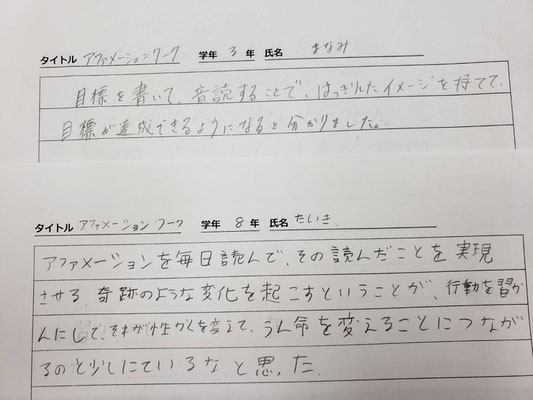 タイトル アファメーションワーク 学年 3 年 氏名 まなみ
目標を書いて、音読することで、はっきりしたイメージを持てて、
目標が達成できるようになると分かりました。
タイトル アファメーションワーク 学年 8 年 氏名 たいき
アファメーションを毎日読んで、その読んだことを実現
させる、奇跡のような変化を起こすということが、行動を習か
んにして、それが性かくを変えて、うん命を変えることにつなが
るのと少しにているなと思った.